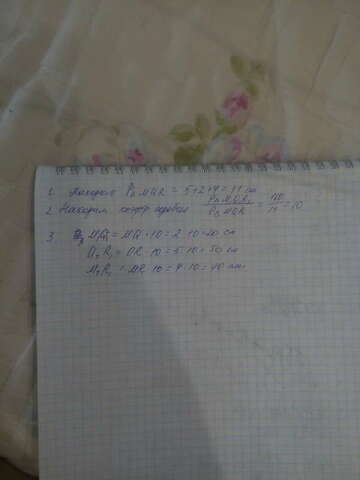 1. Находим P△MQR = 5+2+4=11 см
2. Находим коэфф подобия P△M₁Q₁R₁/P△MQR = 110/11 = 10
3. M₁Q₁ = MQ · 10 = 2 · 10 = 20 см
Q₁R₁ = QR · 10 = 5 · 10 = 50 см
M₁R₁ = MR · 10 = 4 · 10 = 40 см